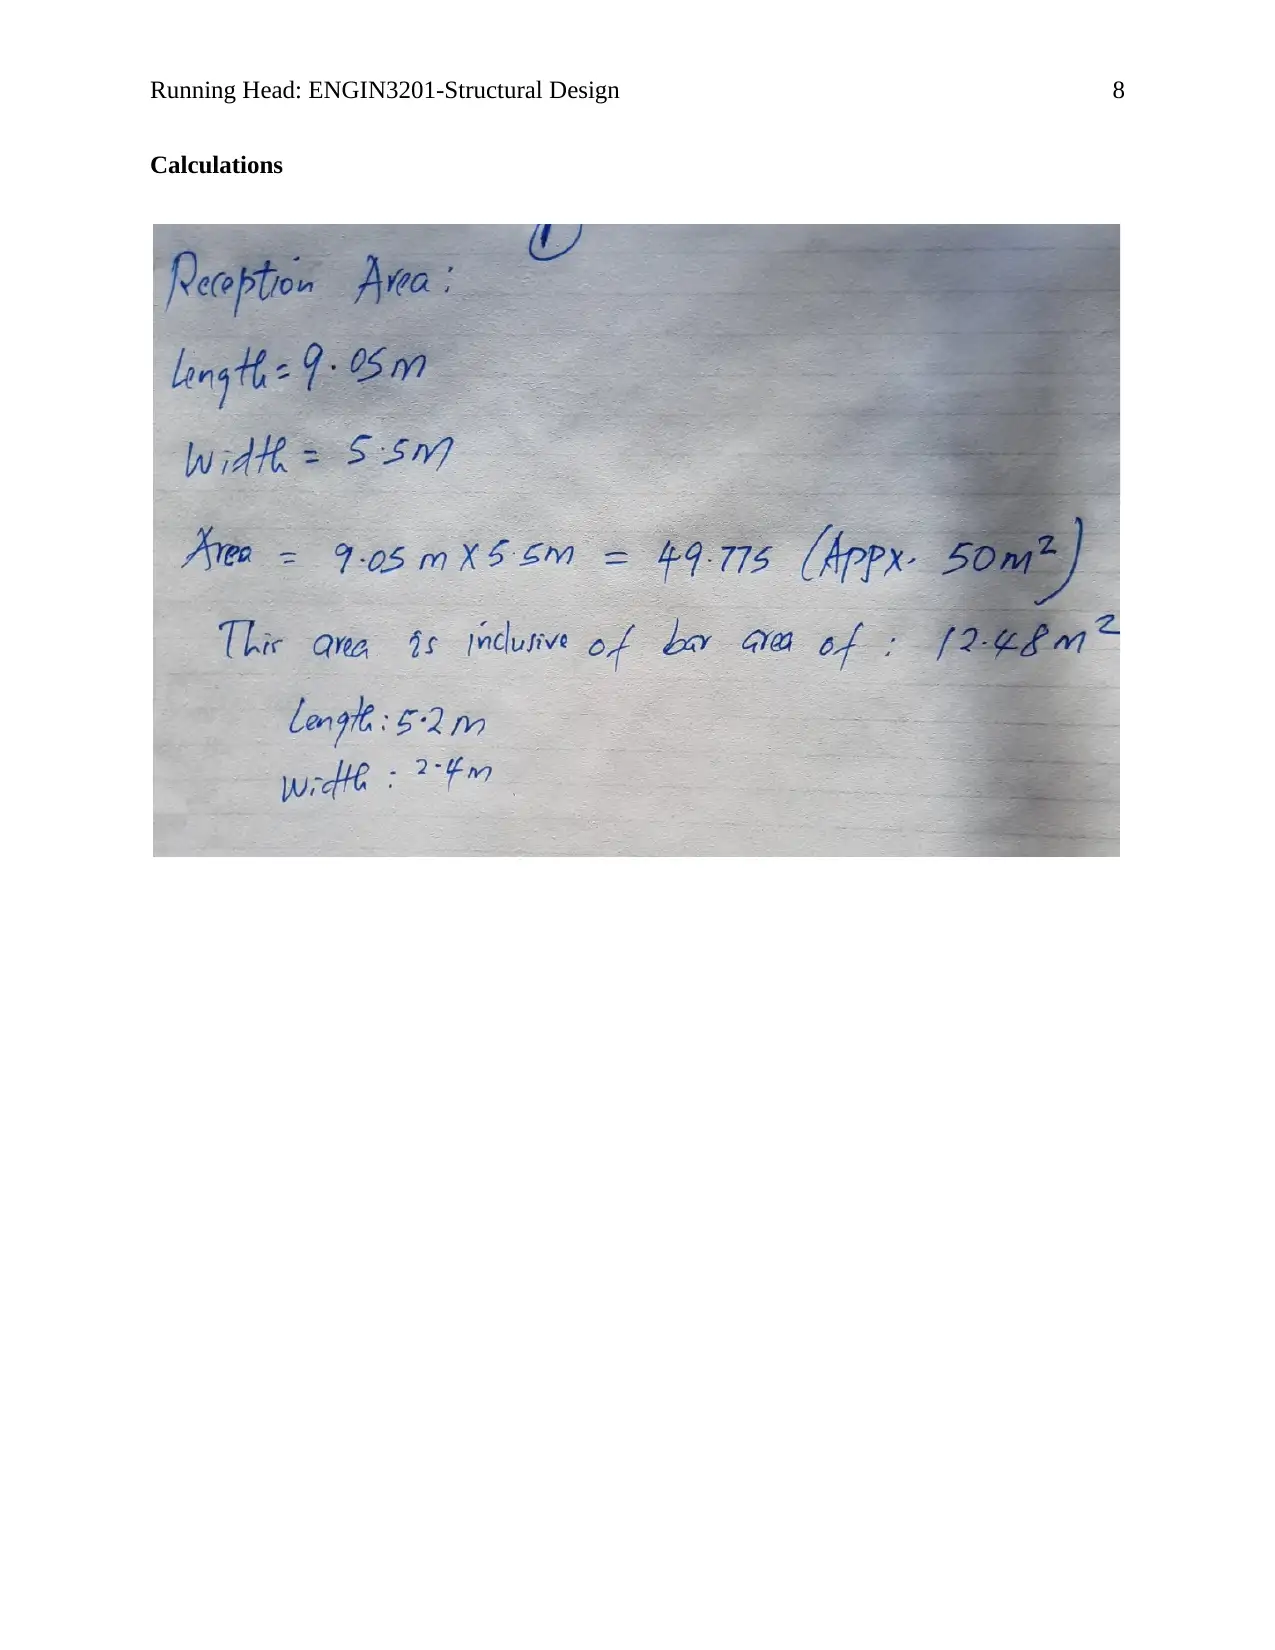 Running Head: ENGIN3201-Structural Design 8
Calculations
1
Reception Area:
Length = 9.05m
Width = 5.5m
Area = 9.05 m X 5.5m = 49.775 (Appx. 50m²)
This area is inclusive of bar area of : 12.48m²
Length: 5.2m
Width : 2.4m